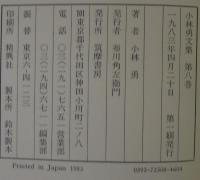 小林勇文集 第八巻
一九八三年四月二十日 第一刷発行
著者 小林勇
発行者 布川角左衛門
発行所 筑摩書房
東京都千代田区神田小川町二ノ八
電話 〇三(二九一)七六五一 営業部
〇三(二九四)六七一一 編集部
振替 東京六-四一二三
印刷所 精興社 製本所 鈴木製本
Printed in Japan 1983
0392-72508-4604